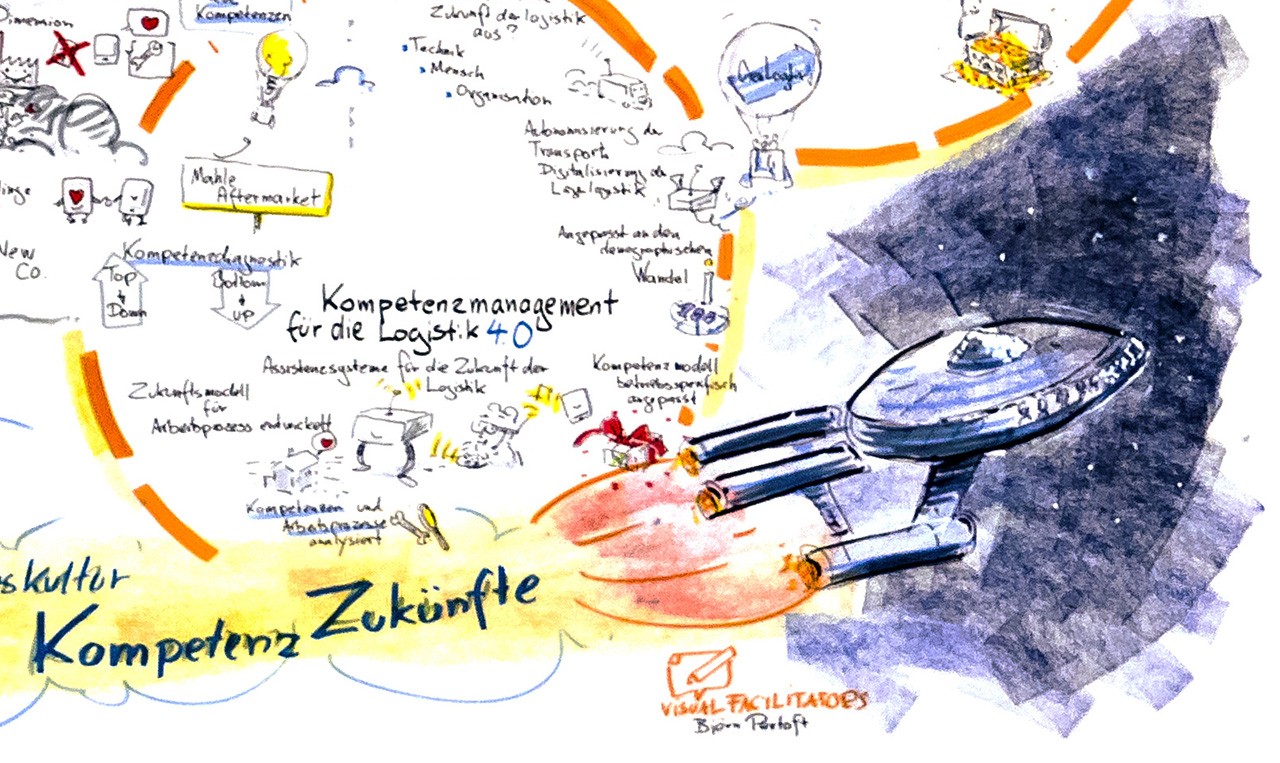 Dimension
Kompetenzen
Zukunft der Logistik
aus?
Technik
Mensch
Organisation
GeoLogin
Autonomisierung der
Transport
Digitalisierung der
Angepasst an den
demographischen
Wandel
Mahle
Aftermarket
New
Co.
Kompetenzdiagnostik
Top
Down
Bottom
up
Kompetenzmanagement
für die Logistik 4.0
Assistenzsysteme für die Zukunft der
Logistik
Kompetenzmodell
betriebsspezifisch
angepasst
Zukunftsmodell
für
Arbeitsprozess entwickelt
Kompetenzen und
Arbeitsprozesse
analysiert
skultur
Kompetenz Zukünfte
VISUAL FACILITATORS
Björn Pertoft